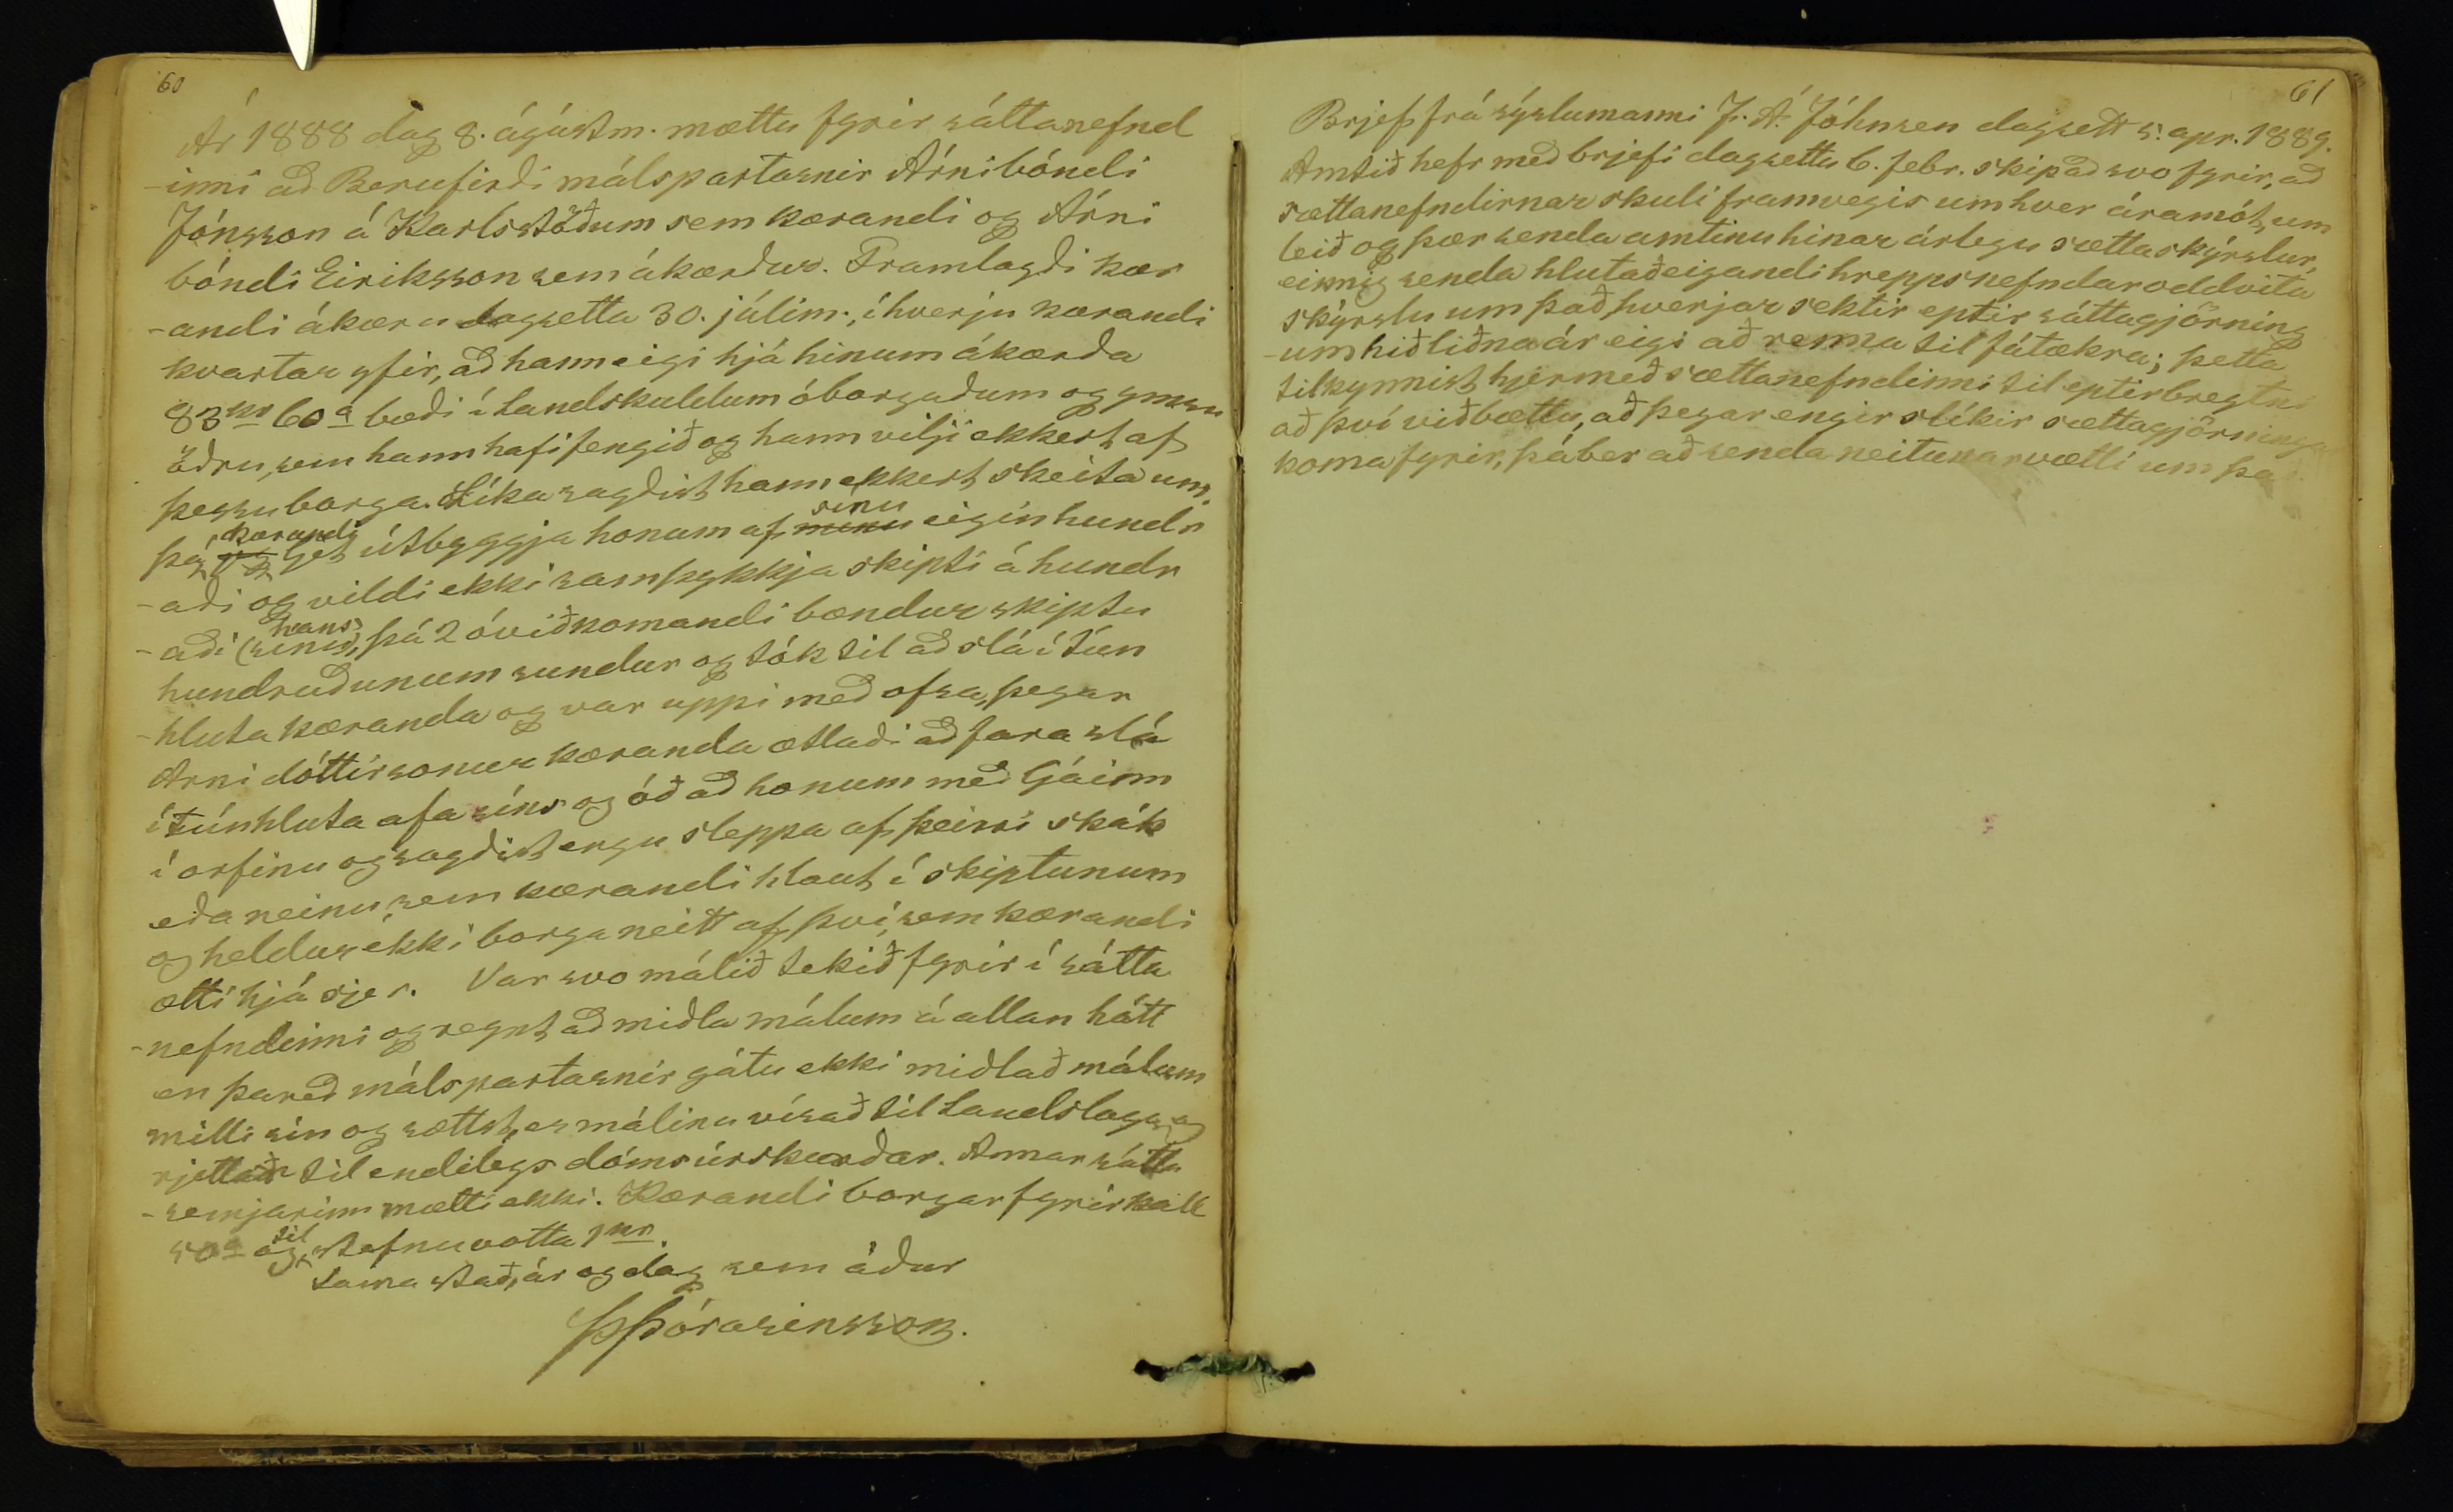 60
Ár 1888 dag 8. ágústm. mættu fyrir sáttanefnd
-inni að Berufirði málspartarnir Árni bóndi
Jónsson á Karlsstöðum sem kærandi og Árni
bóndi Eiriksson sem ákærður. Framlagði kær
-andi ákæru dagsetta 30. júlím., í hverju kærandi
kvartar yfir, að hann eigi hjá hinum ákærða
83 kr 60 a bæði í landskuldum óborguðum og ymsu
öðru, sem hann hafi fengið og hann vilji ekkert af
þessu borga. Líka sagðist hann ekkert skeita um,
þó kærandi ljet útbyggja honum af sínu eigin hundr
-aði og vildi ekki samþykkja skipti á hundr
-aði (hans), þá 2 óviðkomandi bændur skiptu
hundruðunum sundur og tók til að slá í tún
-hluta kæranda og var uppi með ofsa, þegar
Arni dóttirsonur kæranda ætlaði að fara slá
í túnhluta afa síns og óð að honum með ljáinn
í orfinu og sagðist engu sleppa af þeirri skák
eða neinu, sem kærandi hlaut í skiptunum
og heldur ekki borga neitt af því, sem kærandi
ætti hjá sjer. Var svo málið tekið fyrir í sátta
-nefndinni og reynt að miðla málum á allan hátt
en þareð málspartarnir gátu ekki miðlað málum
milli sín og sættst, er málinu vísað til landslaga og
rjettar til endilegs dómsúrskurðar. Annar sátta
-semjarinn mætti ekki. Kærandi borgar fyrirkall
50 a og til stefnuvotta 1 kr.
Sama stað, ár og dag sem áður
Þ Þórarinsson.
61
Brjef frá sýslumanni J. Á. Johnsen dagsett 5. apr. 1889.
Amtið hefr með brjefi dagsettu 6. febr. skipað svo fyrir, að
sættanefndirnar skuli framvegis um hver áramót, um
leið og þær senda amtinu hinar árlegu sættaskýrslur,
einnig senda hlutaðeigandi hreppsnefndaroddvita
skýrslu um það hverjar sektir eptir sáttagjörning
-um hið liðna ár eigi að renna til fátækra; þetta
tilkynnist hjermeð sættanefndinni til eptirbreytni
að því viðbættu, að þegar engir slíkir sættagjörningar
koma fyrir, þá ber að senda neitunarvætti um það.